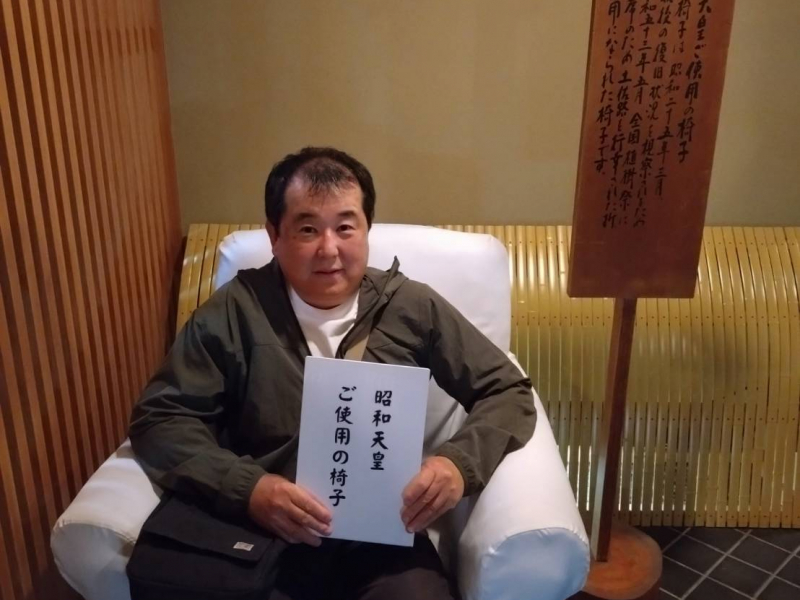 昭和天皇
ご使用の椅子
天皇ご使用の椅子
椅子は 昭和二十五年三月、
後の復旧状況を視察されるため
和五十三年五月 全国植樹祭に
席のため 土佐路を行幸された折
用になられた椅子です。